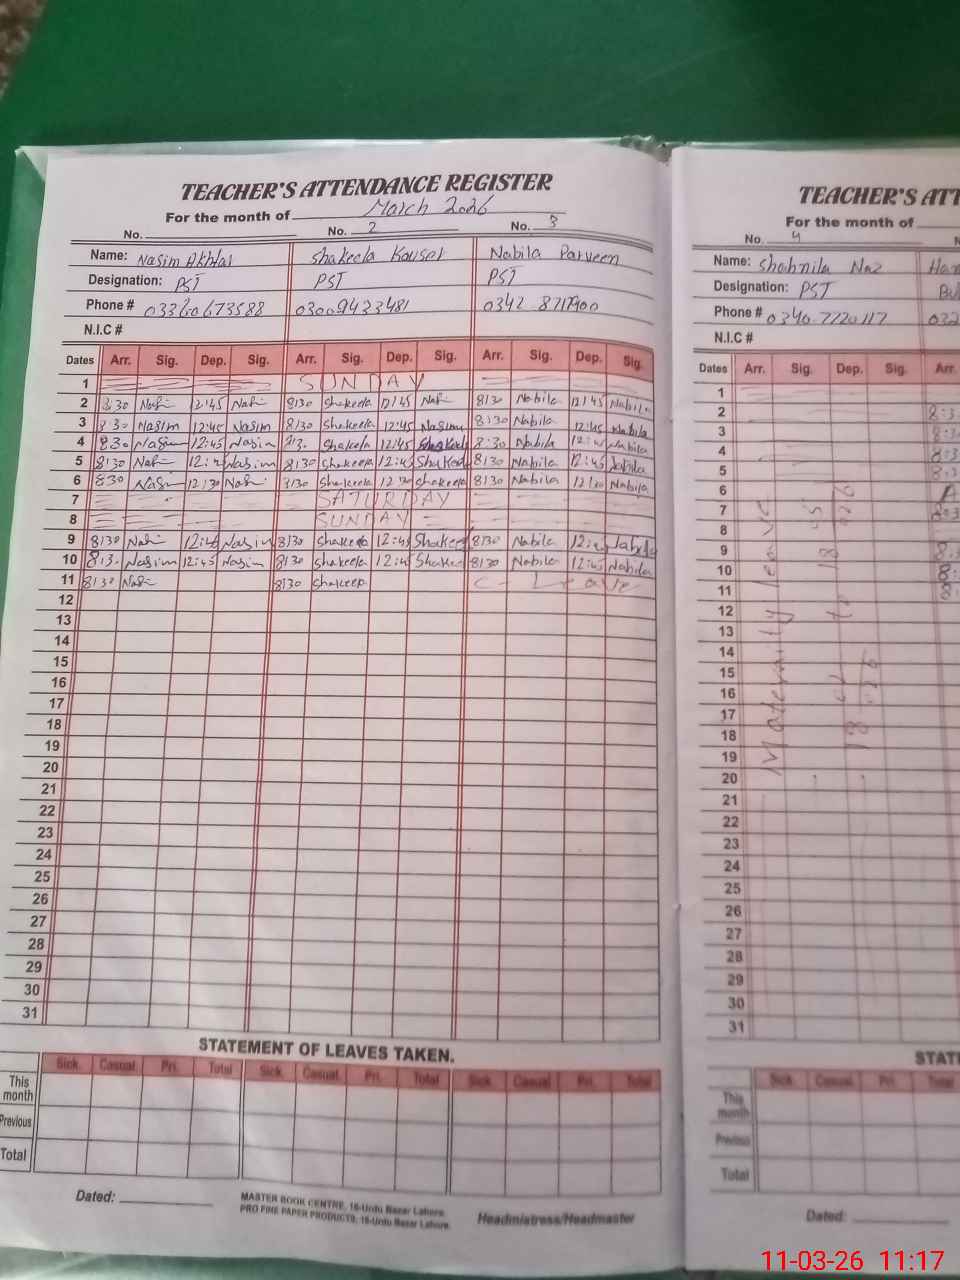 TEACHER'S ATTENDANCE REGISTER
For the month of March 2026
No. No. 2 No. 3
Name: Nasim Akhtar Shakeela Kousar Nabila Parveen
Designation: PST PST PST
Phone # 03009423481
N.I.C #
Dates Arr. Sig. Dep. Sig. Arr. Sig. Dep. Sig. Arr. Sig. Dep. Sig.
1 SUNDAY
2 8:30 Nasi 12:45 Nasi 8:30 Shakeela 12:45 8:30 Nabila 12:45 Nabila
3 8:30 Nasim 12:45 Nasim 8:30 Shakeela 12:45 8:30 Nabila 12:45 Nabila
4 8:30 Nasim 12:45 Nasim Shakeela 12:45 Shakeela 8:30 Nabila Nabila
5 8:30 Nasim 8:30 Shakeela 12:45 Shakeela 8:30 Nabila 12:45 Nabila
6 8:30 Nasim 12:30 8:30 Shakeela 12:30 Shakeela 8:30 Nabila 12:30 Nabila
7 SATURDAY
8 SUNDAY
9 8:30 12:45 Nasim 8:30 Shakeela 12:45 Shakeela 8:30 Nabila Nabila
10 8:3. Nasim 12:45 Nasim 8:30 Shakeela 12:45 Shakeela 8:30 Nabila 12:45 Nabila
11 8:30 8:30 Shakeela C-Leave
12
13
14
15
16
17
18
19
20
21
22
23
24
25
26
27
28
29
30
31
STATEMENT OF LEAVES TAKEN.
Sick. Casual. Pri. Total Sick. Casual. Pri. Total Sick. Casual Pri. Total
This month
Previous
Total
Dated:
MASTER BOOK CENTRE, 16-Urdu Bazar Lahore.
PRO FINE PAPER PRODUCTS, 16-Urdu Bazar Lahore.
Headmistress/Headmaster
TEACHER'S ATT
For the month of
No. 4
Name: Shahnila Naz
Designation: PST
Phone # 0340-7720117
N.I.C #
Dates Arr. Sig. Dep. Sig. Arr.
1
2
3
4
5
6
7
8
9
10
11
12
13
14
15
16
17
18
19
20
21
22
23
24
25
26
27
28
29
30
31
Maternity leave
STAT
Sick Casual Pri. Total
This month
Previous
Total
Dated:
11-03-26 11:17